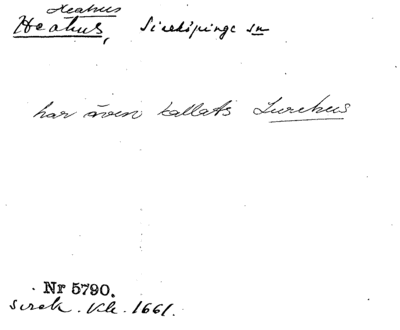 Heahus
Heahus, Sireköpinge sn
har även kallats Lurehus
Nr 5790.
Sirek. Kb. 1661.